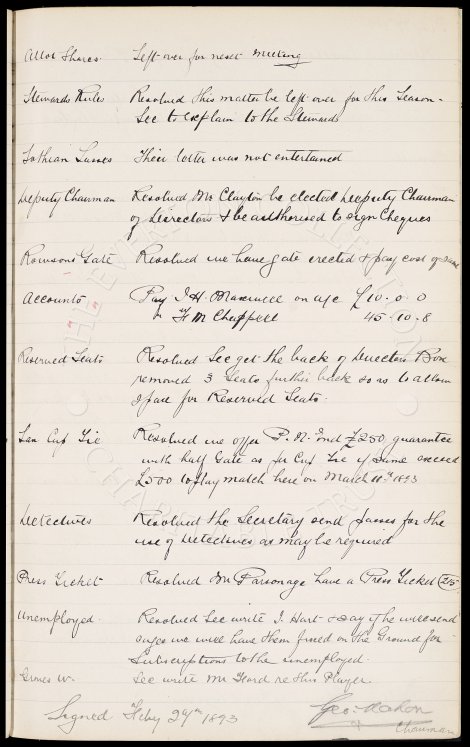 Allot Shares. Left over for next meeting
Stewards Rules Resolved this matter be left over for this Season.
Sec to explain to the Stewards
Lothian Lasses Their letter was not entertained
Deputy Chairman Resolved Mr Clayton be elected Deputy Chairman
of Directors & be authorised to sign Cheques
Rowsons Gate Resolved we have gate erected & pay cost of same
Accounts Pay J. H. Maxwell on a/c £10-0-0
" H M Chappell 45-10-8
Reserved Seats Resolved Sec get the back of Directors Box
removed 3 Seats further back so as to allow
space for Reserved Seats.
Lan Cup Tie Resolved we offer P. N. End £250 guarantee
with half Gate as per Cup Tie if same exceed
£500 to play match here on March 11th 1893
Detectives Resolved the Secretary send passes for the
use of Detectives as may be required
Press Ticket Resolved Mr Parsonage have a Press Ticket
Unemployed. Resolved Sec write J. Hart & say if he will send
we will have them fixed on the Ground for
Subscriptions to the unemployed.
Groves W. Sec write Mr Ford re this Player
Signed Feby 27th 1893 Geo: Mahon
Chairman